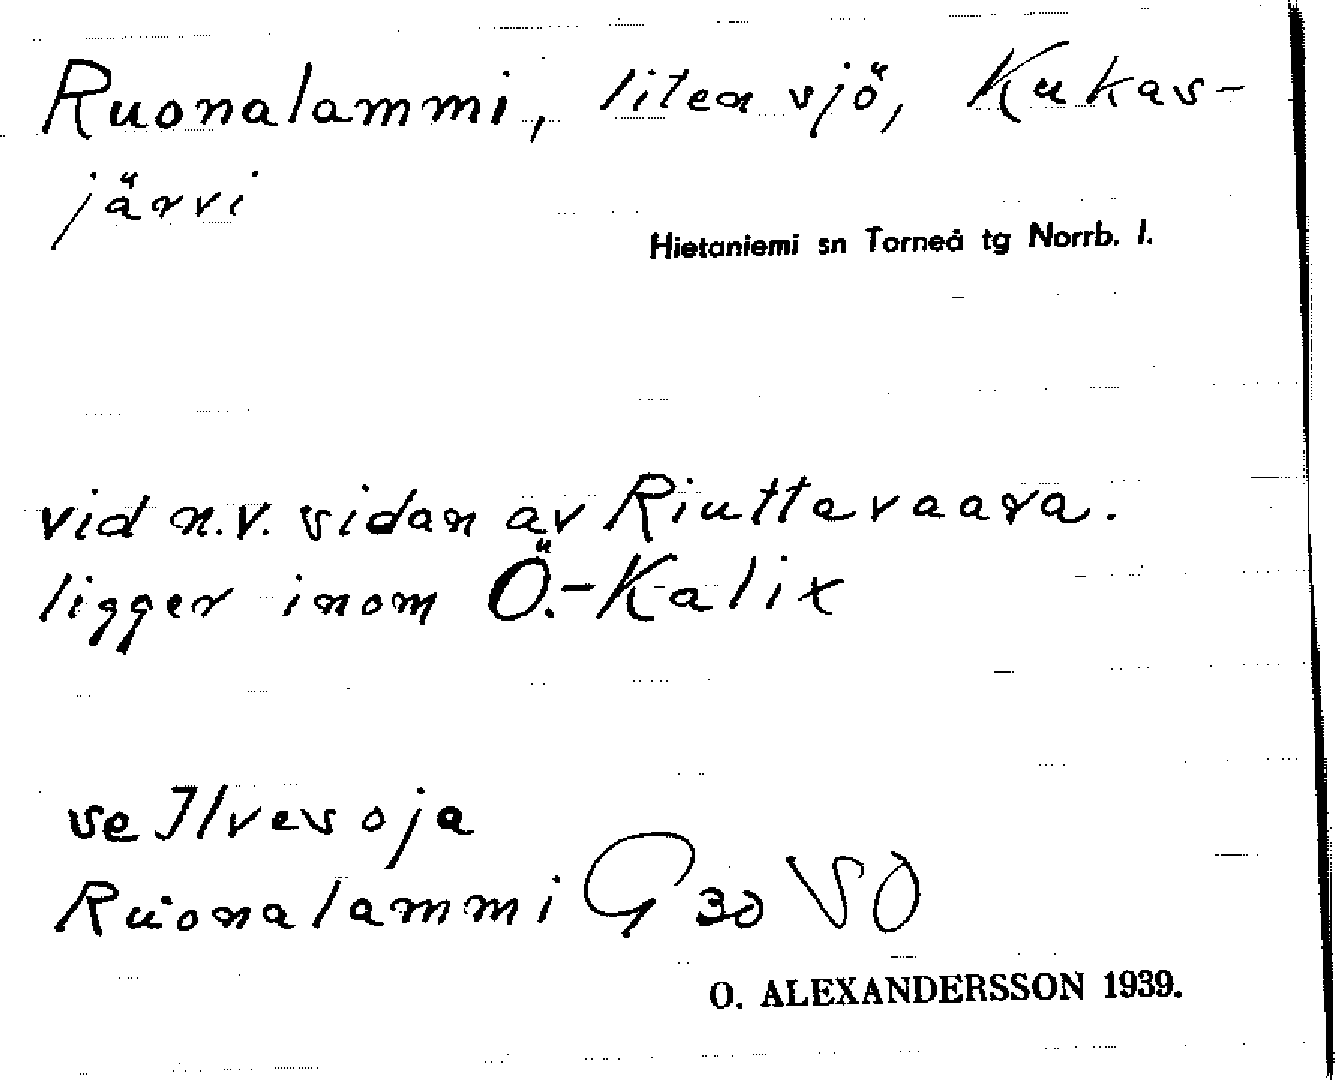 Ruonalammi, liten sjö, Kukas-
järvi
Hietaniemi sn Torneå tg Norrb. l.
vid n.v. sidan av Riuttavaara.
ligger inom Ö.-Kalix
se Ilvesoja
Ruonalammi G 30 SO
O. ALEXANDERSSON 1939.